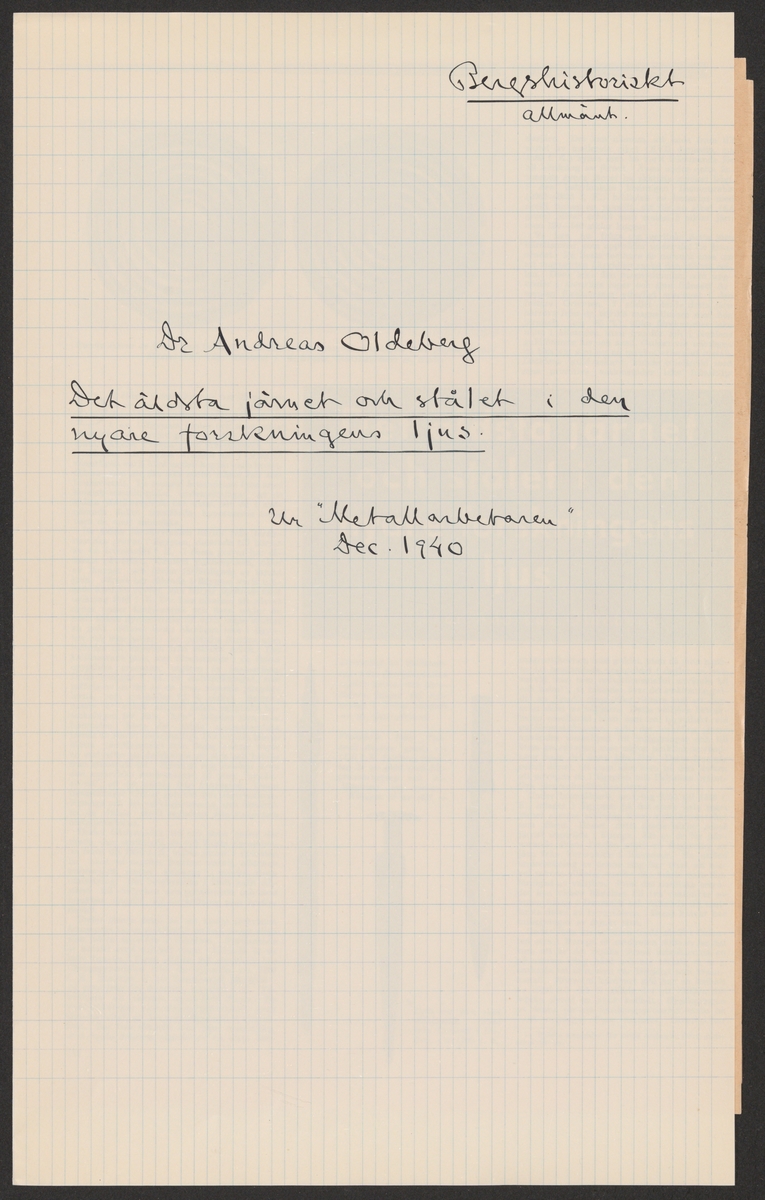 Bergshistoriskt
allmänt.
Dr Andreas Oldeberg
Det äldsta järnet och stålet i den
nyare forskningens ljus.
Ur "Metallarbetaren"
Dec. 1940